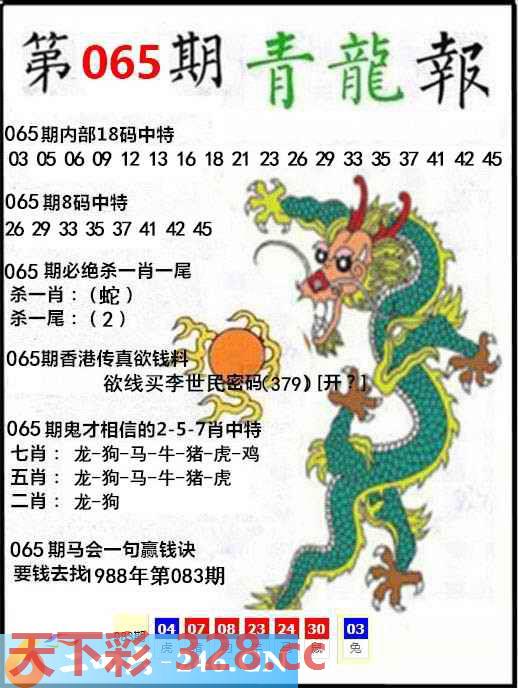 第065期青龍報
065期内部18码中特
03 05 06 09 12 13 16 18 21 23 26 29 33 35 37 41 42 45
065期8码中特
26 29 33 35 37 41 42 45
065期必绝杀一肖一尾
杀一肖：（蛇）
杀一尾：（2）
065期香港传真欲钱料
欲线买李世民密码(379)[开?]
065期鬼才相信的2-5-7肖中特
七肖： 龙-狗-马-牛-猪-虎-鸡
五肖： 龙-狗-马-牛-猪-虎
二肖： 龙-狗
065期马会一句赢钱诀
要钱去找1988年第083期
04 07 08 23 24 30 03
虎 兔
天下彩-328.cc